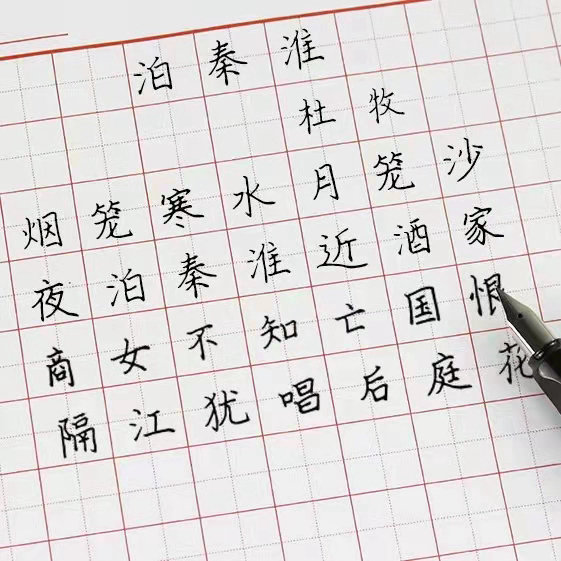 泊秦淮
杜牧
烟笼寒水月笼沙
夜泊秦淮近酒家
商女不知亡国恨
隔江犹唱后庭花